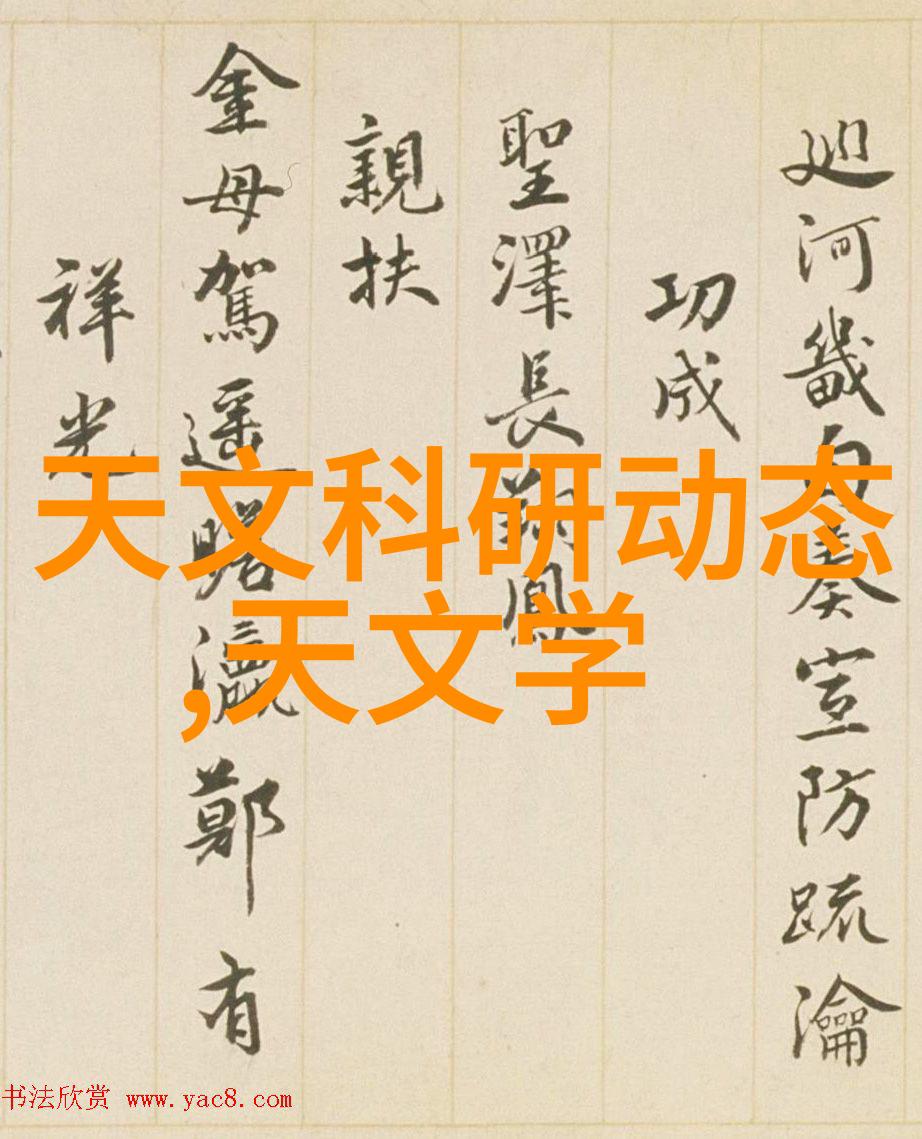 天文科研动态
,天文学
廵河畿奏宣防疏瀹
功成
聖澤長鳳
親扶
金母駕遥瞻瀛鄭有
祥光
书法欣赏 www.yac8.com